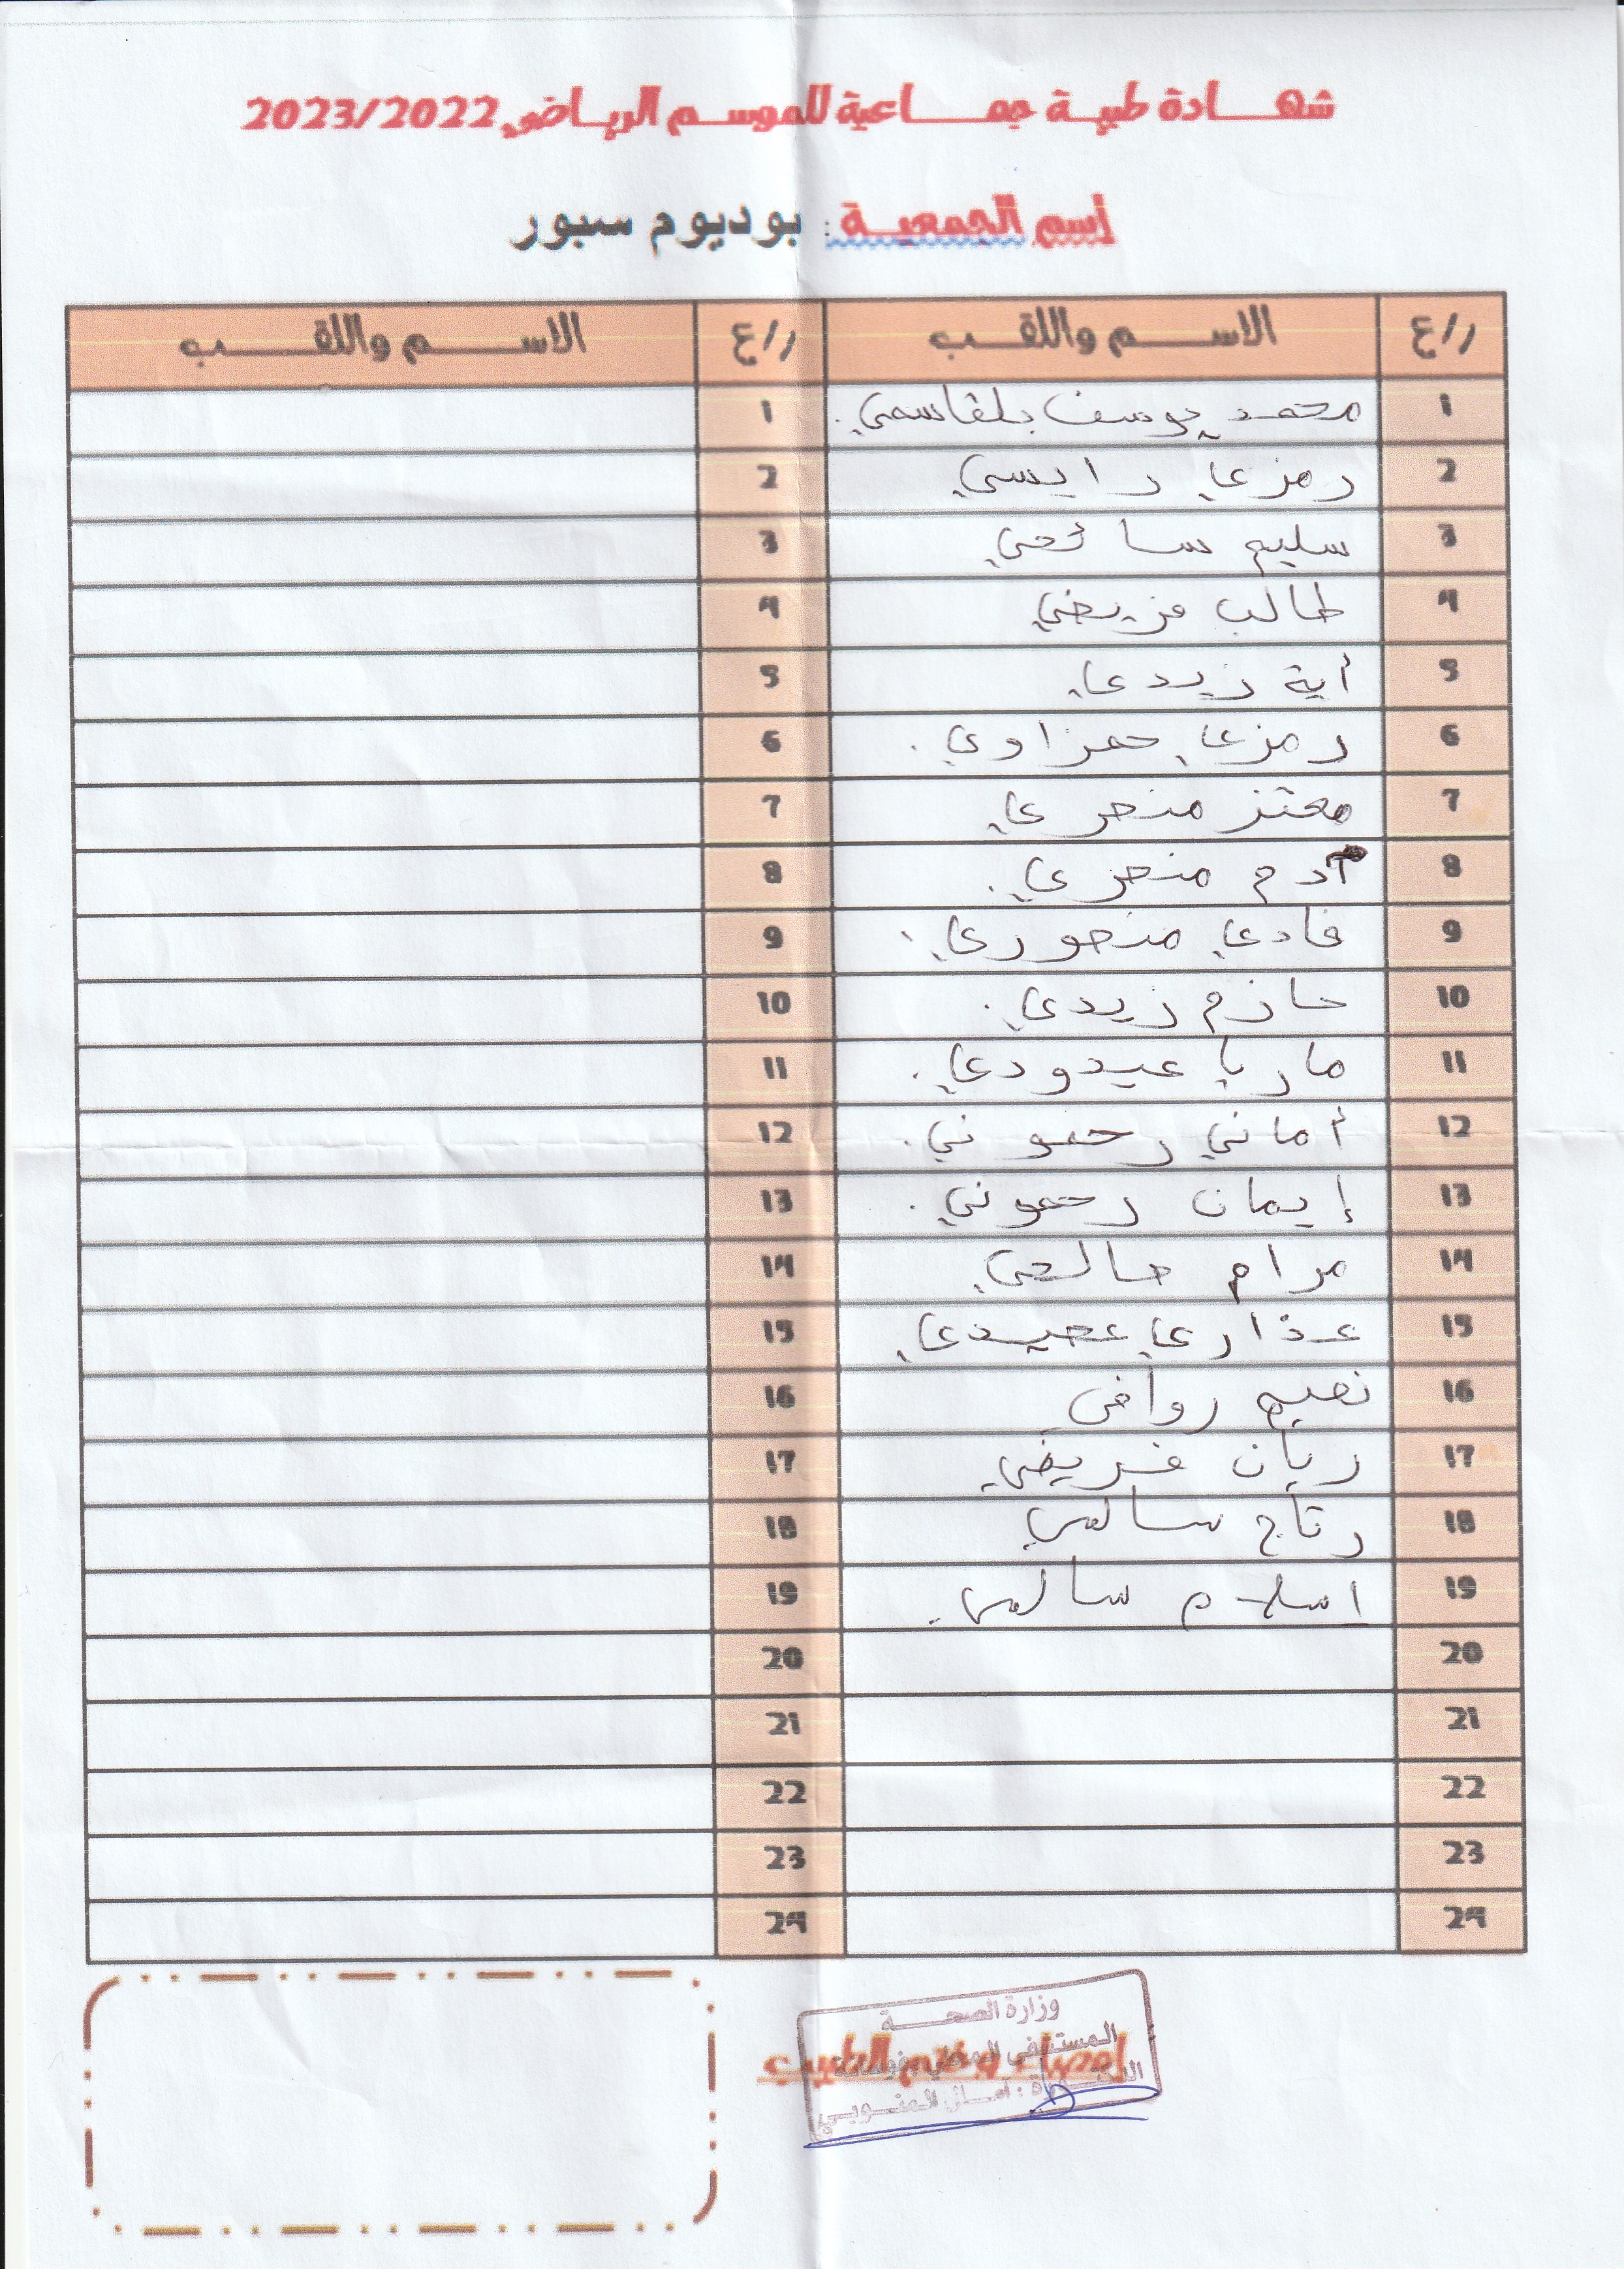 شهادة طبية جماعية للموسم الرياضي 2023/2022
إسم الجمعية : بوديوم سبور
ر/ع الاسم واللقب ر/ع الاسم واللقب
1 محمد يوسف بلقاسمي 1
2 رمزي رايسي 2
3 سليم سائحي 3
4 طالب فريضي 4
5 أية زيدي 5
6 رمزي حمزاوي 6
7 معتز منصري 7
8 آدم منصري 8
9 فادي منصوري 9
10 حازم زيدي 10
11 ماريا عيدودي 11
12 أماني رحموني 12
13 إيمان رحموني 13
14 مرام صالحي 14
15 عذاري عبيدي 15
16 نعيم روافي 16
17 ريان فريضي 17
18 رتاج سالمي 18
19 اسلام سالمي 19
20 20
21 21
22 22
23 23
24 24
وزارة الصحة
المستشفى المحلي بفوسانة
إمضاء وختم الطبيب
الدكتورة : أماني المنوبي